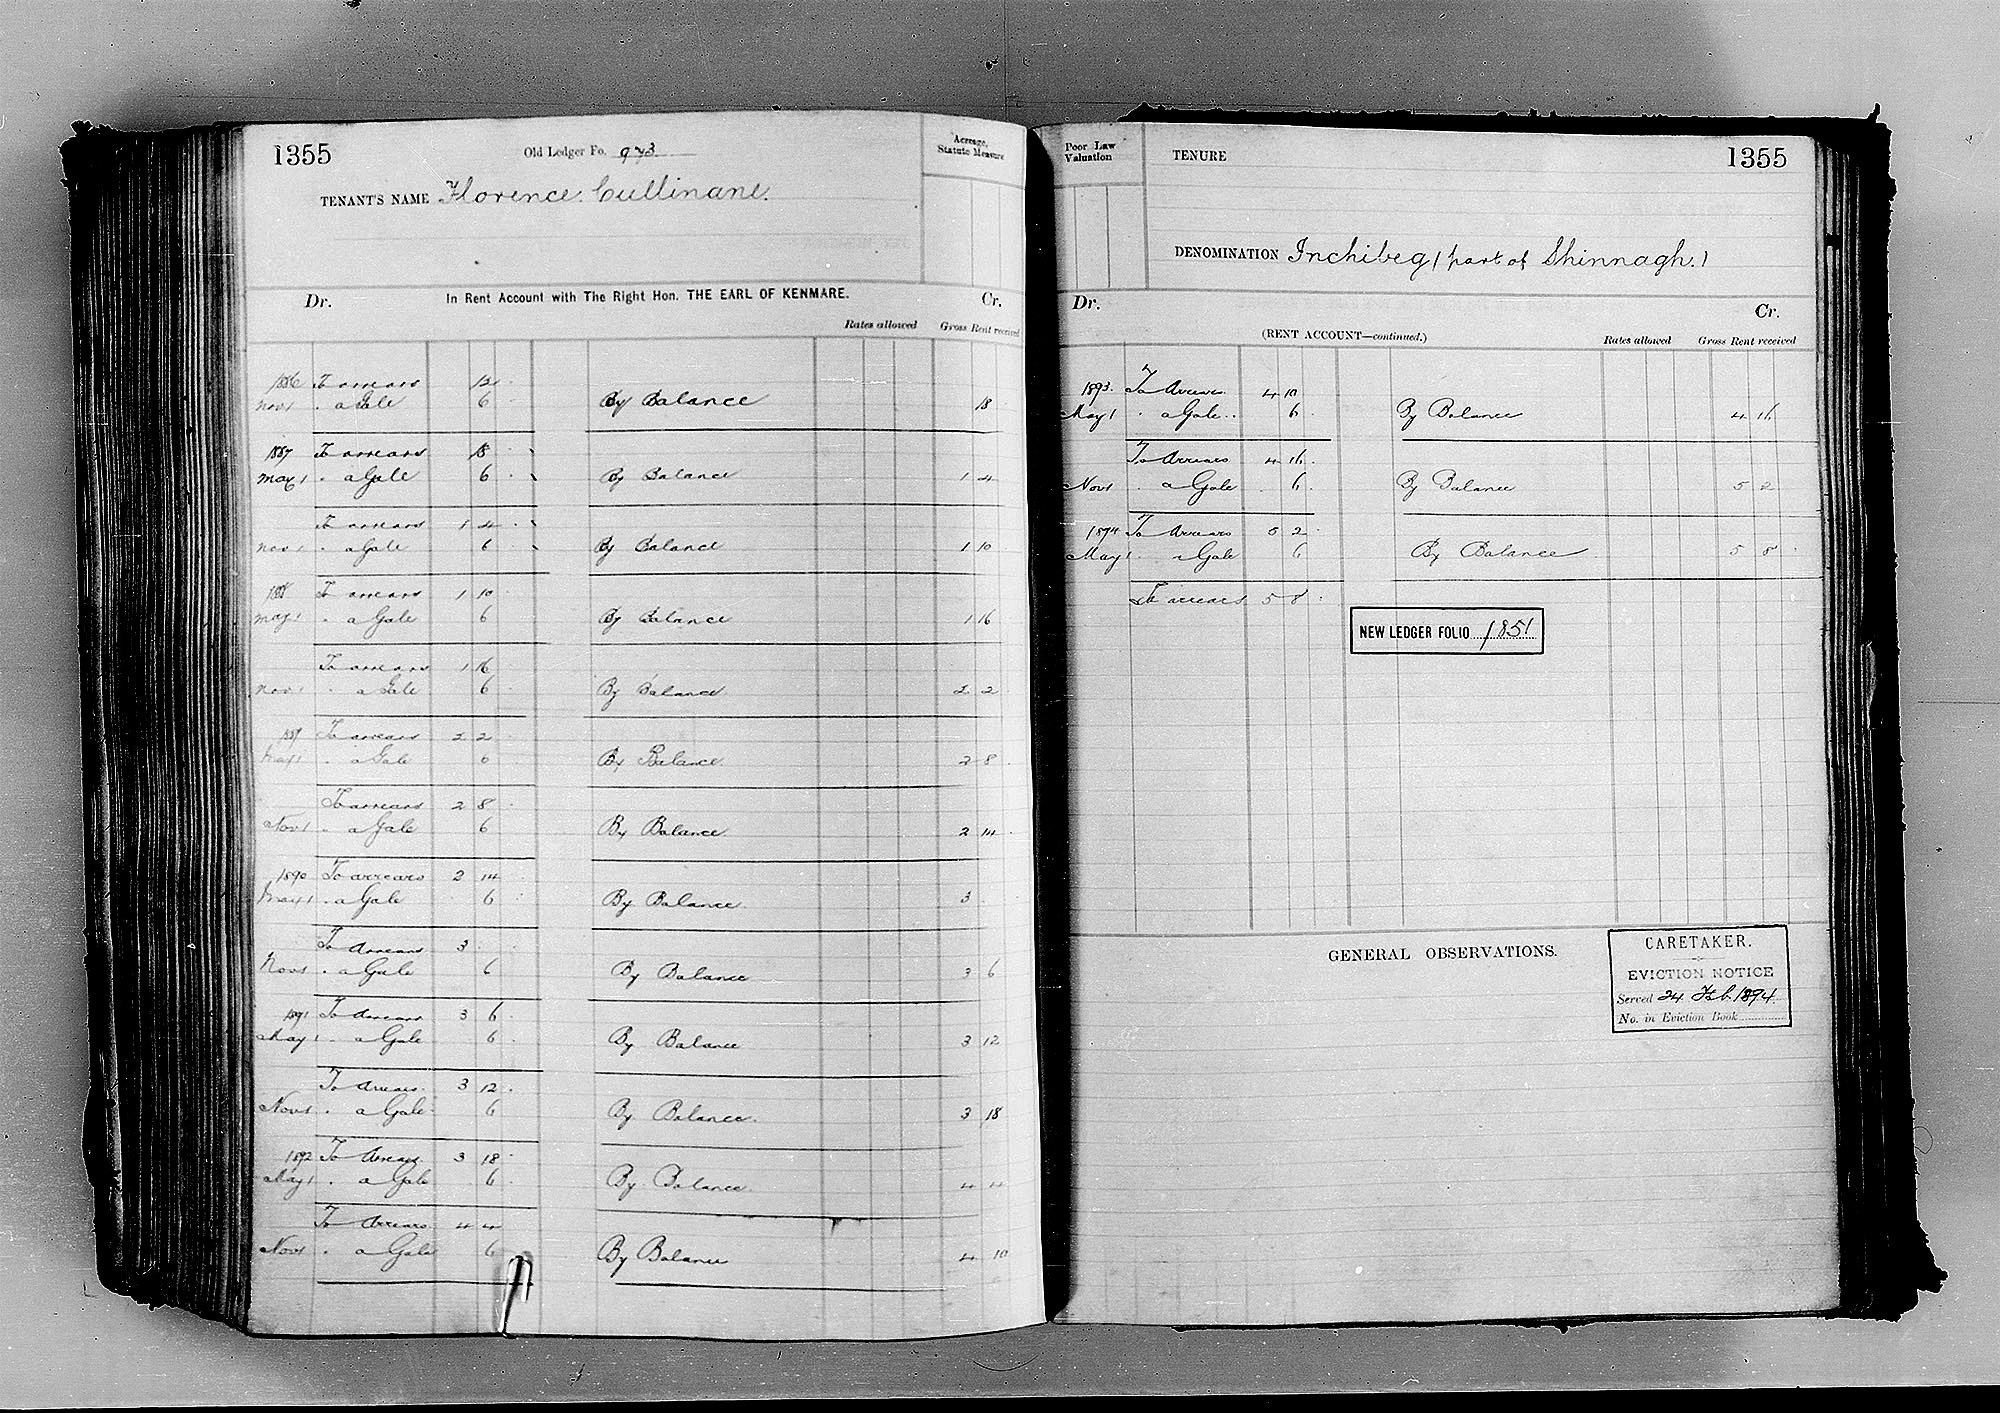 1355 Old Ledger Fo. 973 Acreage, Statute Measure
TENANT'S NAME Florence Cullinane.
Dr. In Rent Account with The Right Hon. THE EARL OF KENMARE. Cr.
Rates allowed Gross Rent received
1886 To arrears 12
Nov 1 . a Gale 6 By Balance 18
1887 To arrears 18
May 1 . a Gale 6 By Balance 1 4
To arrears 1 4
Nov 1 . a Gale 6 By Balance 1 10
1888 To arrears 1 10
May 1 . a Gale 6 By Balance 1 16
To arrears 1 16
Nov 1 . a Gale 6 By Balance 2 2
1889 To arrears 2 2
May 1 . a Gale 6 By Balance 2 8
To arrears 2 8
Nov 1 . a Gale 6 By Balance 2 14
1890 To arrears 2 14
May 1 . a Gale 6 By Balance 3
To Arrears 3
Nov 1 . a Gale 6 By Balance 3 6
1891 To Arrears 3 6
May 1 . a Gale 6 By Balance 3 12
To Arrears 3 12
Nov 1 . a Gale 6 By Balance. 3 18
1892 To Arrears 3 18
May 1 . a Gale 6 By Balance 4 4
To Arrears 4 4
Nov 1 . a Gale 6 By Balance 4 10
Poor Law Valuation TENURE 1355
DENOMINATION Inchibeg (part of Shinnagh.)
Dr. Cr.
(RENT ACCOUNT—continued.) Rates allowed Gross Rent received
1893. To Arrears 4 10
May 1 . a Gale 6 By Balance 4 16
To Arrears 4 16
Nov 1 . a Gale 6 By Balance 5 2
1894 To Arrears 5 2
May 1 . a Gale 6 By Balance 5 8
To arrears 5 8
NEW LEDGER FOLIO 1851
GENERAL OBSERVATIONS.
CARETAKER.
EVICTION NOTICE
Served 24 Feb. 1894
No. in Eviction Book